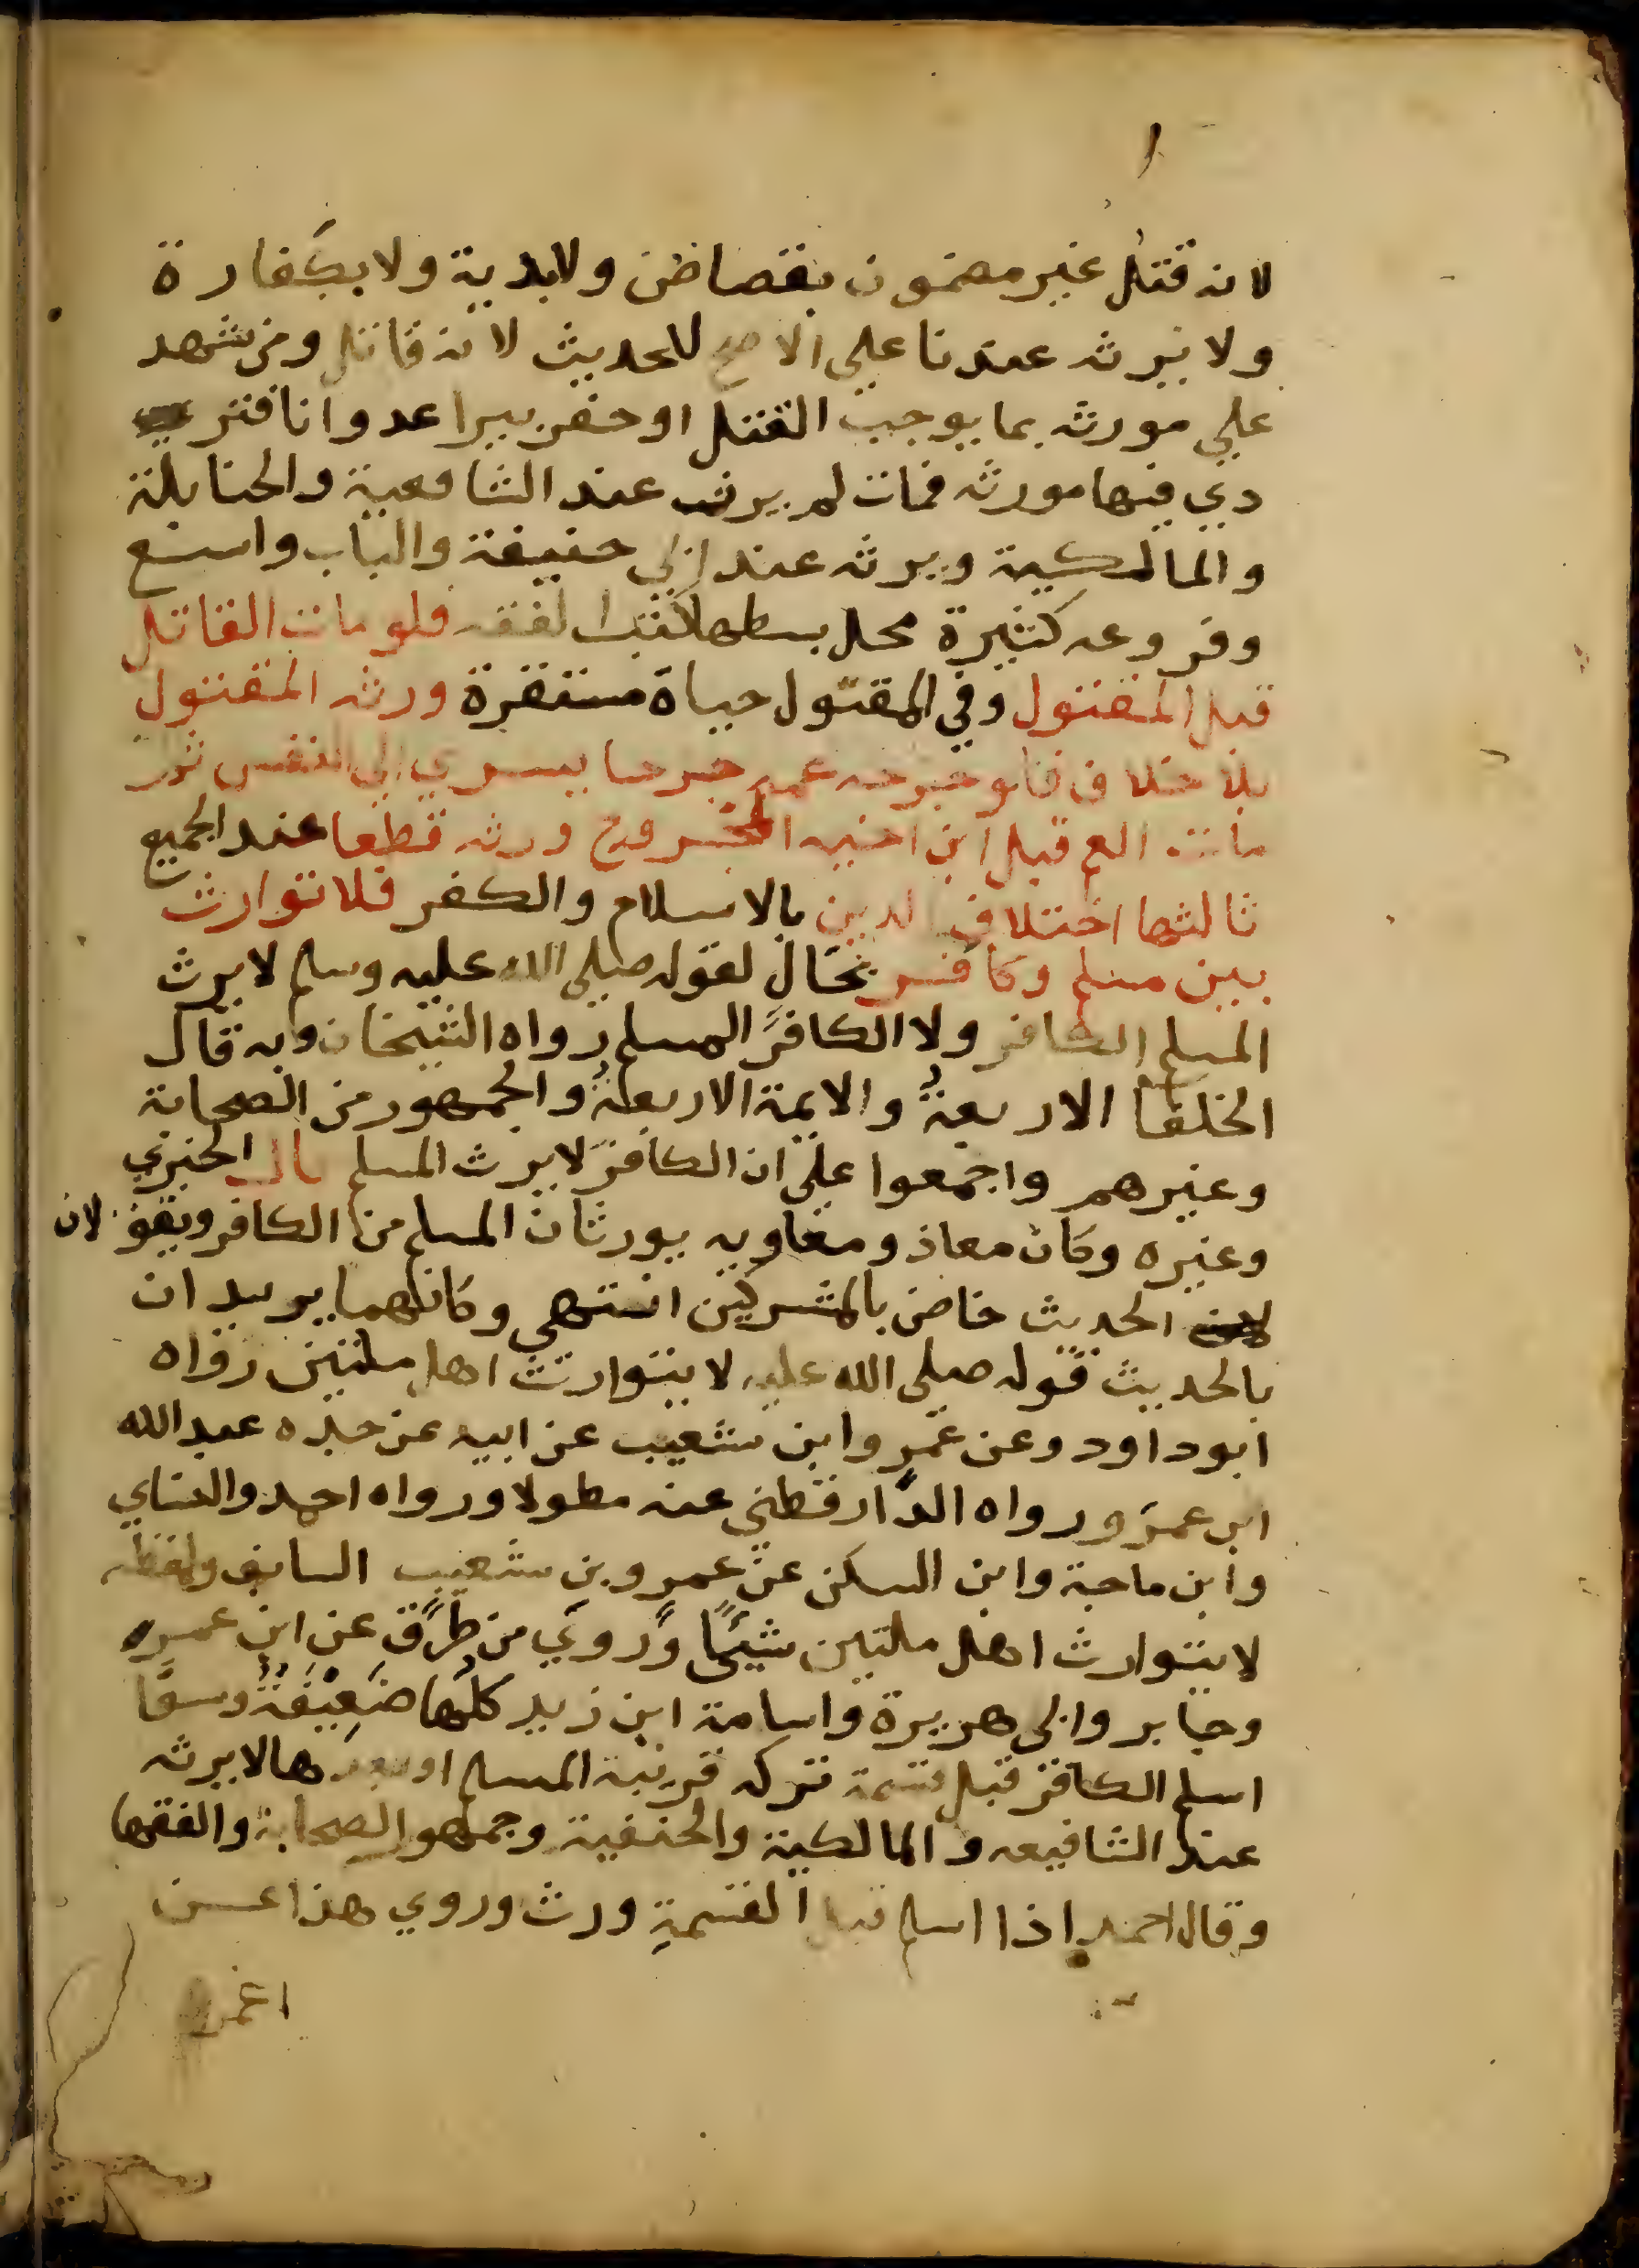 لانه قتل غير مضمون بقصاص ولا بدية ولا بكفارة
ولا يرثه عندنا علي الاصح للحديث لانه قاتل ومن شهد
علي مورثه بما يوجب القتل او حفر بيرا عدوانا فتر
دي فيها مورثه فمات لم يرثه عند الشافعية والحنابلة
والمالكية ويرثه عند ابي حنيفة والباب واسع
وفروعه كثيرة محل بسطها كتب الفقه فلو مات القاتل
قبل المقتول وفي المقتول حياة مستقرة ورثه المقتول
بلا خلاف فلو جرحه عمه جرحا يسري الي النفس ثم
مات العم قبل ابن اخيه المجروح ورثه قطعا عند الجميع
ثالثها اختلاف الدين بالاسلام والكفر فلا توارث
بين مسلم وكافر بحال لقوله صلي الله عليه وسلم لا يرث
المسلم الكافر ولا الكافر المسلم رواه الشيخان وبه قال
الخلفا الاربعة والايمة الاربعة والجمهور من الصحابة
وغيرهم واجمعوا علي ان الكافر لا يرث المسلم قال الخبري
وغيره وكان معاذ ومعاويه يورثان المسلم من الكافر ويقو لان
الحديث خاص بالمشركين انتهي وكانهما يريدان
بالحديث قوله صلي الله عليه لا يتوارث اهل ملتين رواه
ابوداود وعن عمروابن شعيب عن ابيه عن جده عبدالله
ابن عمر ورواه الدارقطني عنه مطولا ورواه احمد والنساي
وابن ماجة وابن السكن عن عمرو بن شعيب السابق ولفظه
لا يتوارث اهل ملتين شيئا وروي من طرق عن ابن عمر
وجابر وابي هريرة واسامة ابن زيد كلها ضعيفة وسوا
اسلم الكافر قبل قسمة تركه قريبه المسلم او بعدها لا يرثه
عند الشافيعه والمالكية والحنفية وجمهور الصحابة والفقها
وقال احمد اذا اسلم قبل القسمة ورث وروي هذا عن